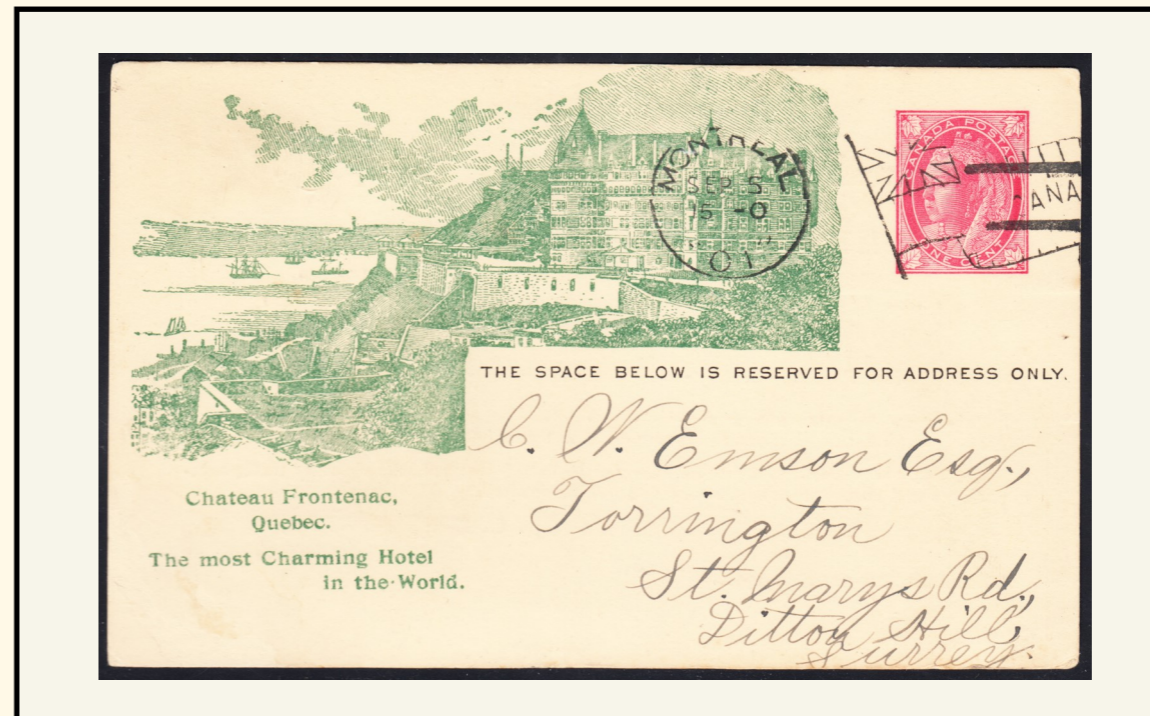 CANADA POSTAGE
ONE CENT
MONTREAL
SEP 5
15 -0
01
CANA
THE SPACE BELOW IS RESERVED FOR ADDRESS ONLY.
C. W. Emson Esq.,
Torrington
St. Marys Rd.,
Ditton Hill,
Surrey.
Chateau Frontenac,
Quebec.
The most Charming Hotel
in the World.